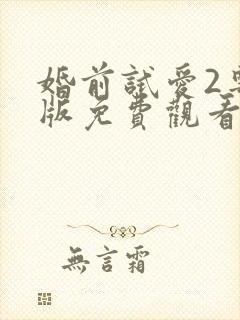 婚前試愛2
版免費觀看
無言霜